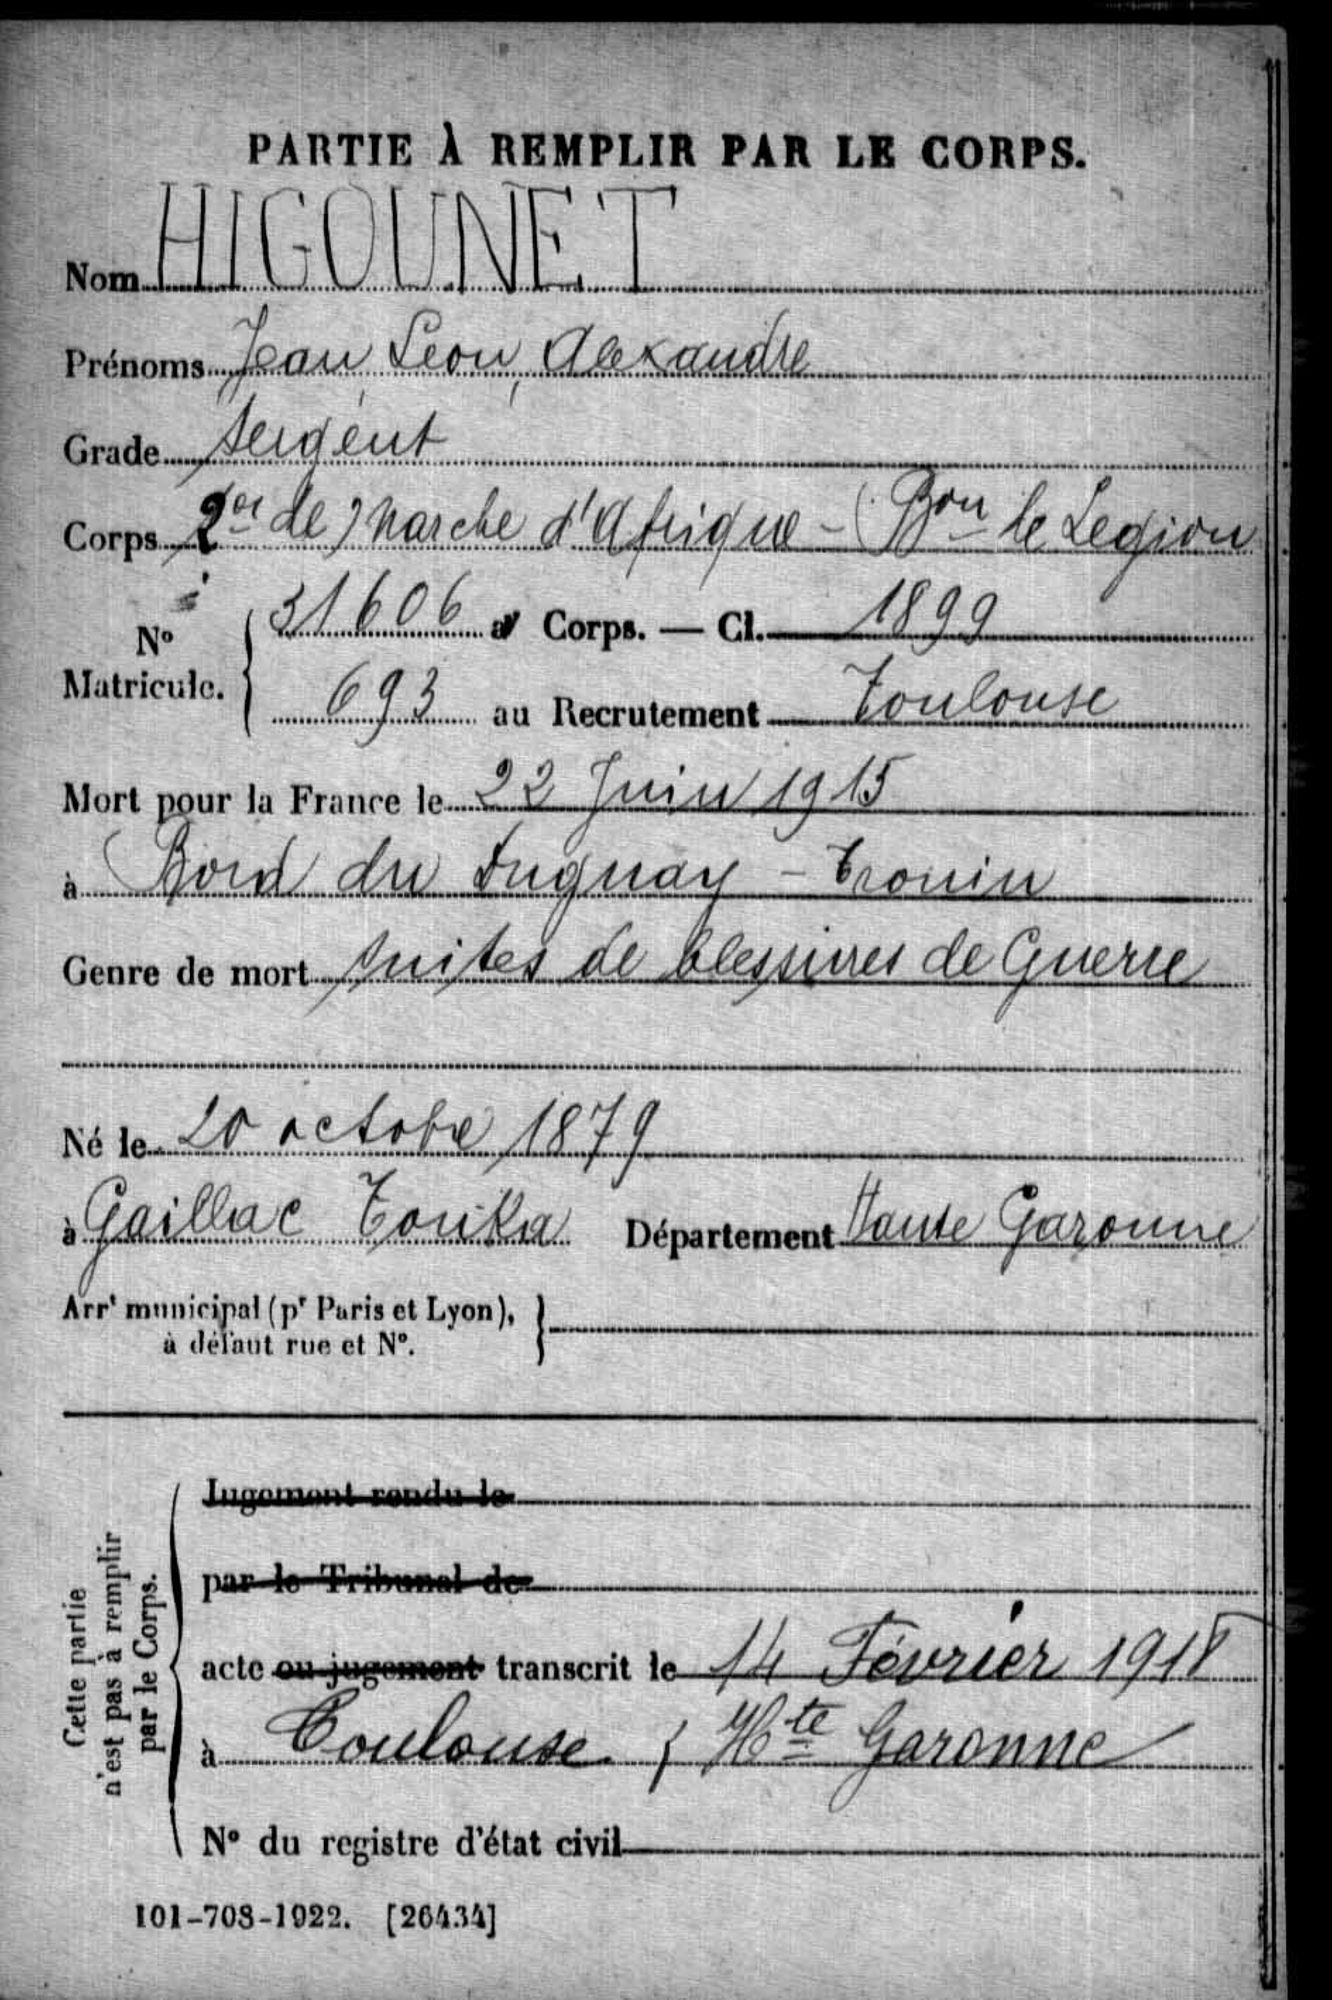 PARTIE À REMPLIR PAR LE CORPS.
Nom HIGOUNET
Prénoms Jean Léon, Alexandre
Grade Sergent
Corps 2er de Marche d'Afrique - Bon de Légion
31606 au Corps. — Cl. 1899
N° Matricule.
693 au Recrutement Toulouse
Mort pour la France le 22 Juin 1915
à Bord du Duguay - Trouin
Genre de mort suites de blessures de Guerre
Né le 20 octobre 1879
à Gaillac Toulza Département Haute Garonne
Arrt municipal (pr Paris et Lyon),
à défaut rue et N°.
Cette partie n'est pas à remplir par le Corps.
Jugement rendu le
par le Tribunal de
acte ou jugement transcrit le 14 Février 1918
à Toulouse, Hte Garonne
N° du registre d'état civil
101-708-1922. [26434]